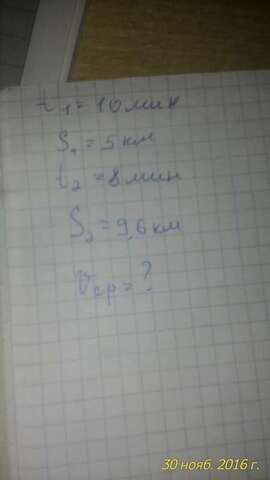 t₁ = 10 мин
S₁ = 5 км
t₂ = 8 мин
S₂ = 9,6 км
Vср = ?
30 нояб. 2016 г.